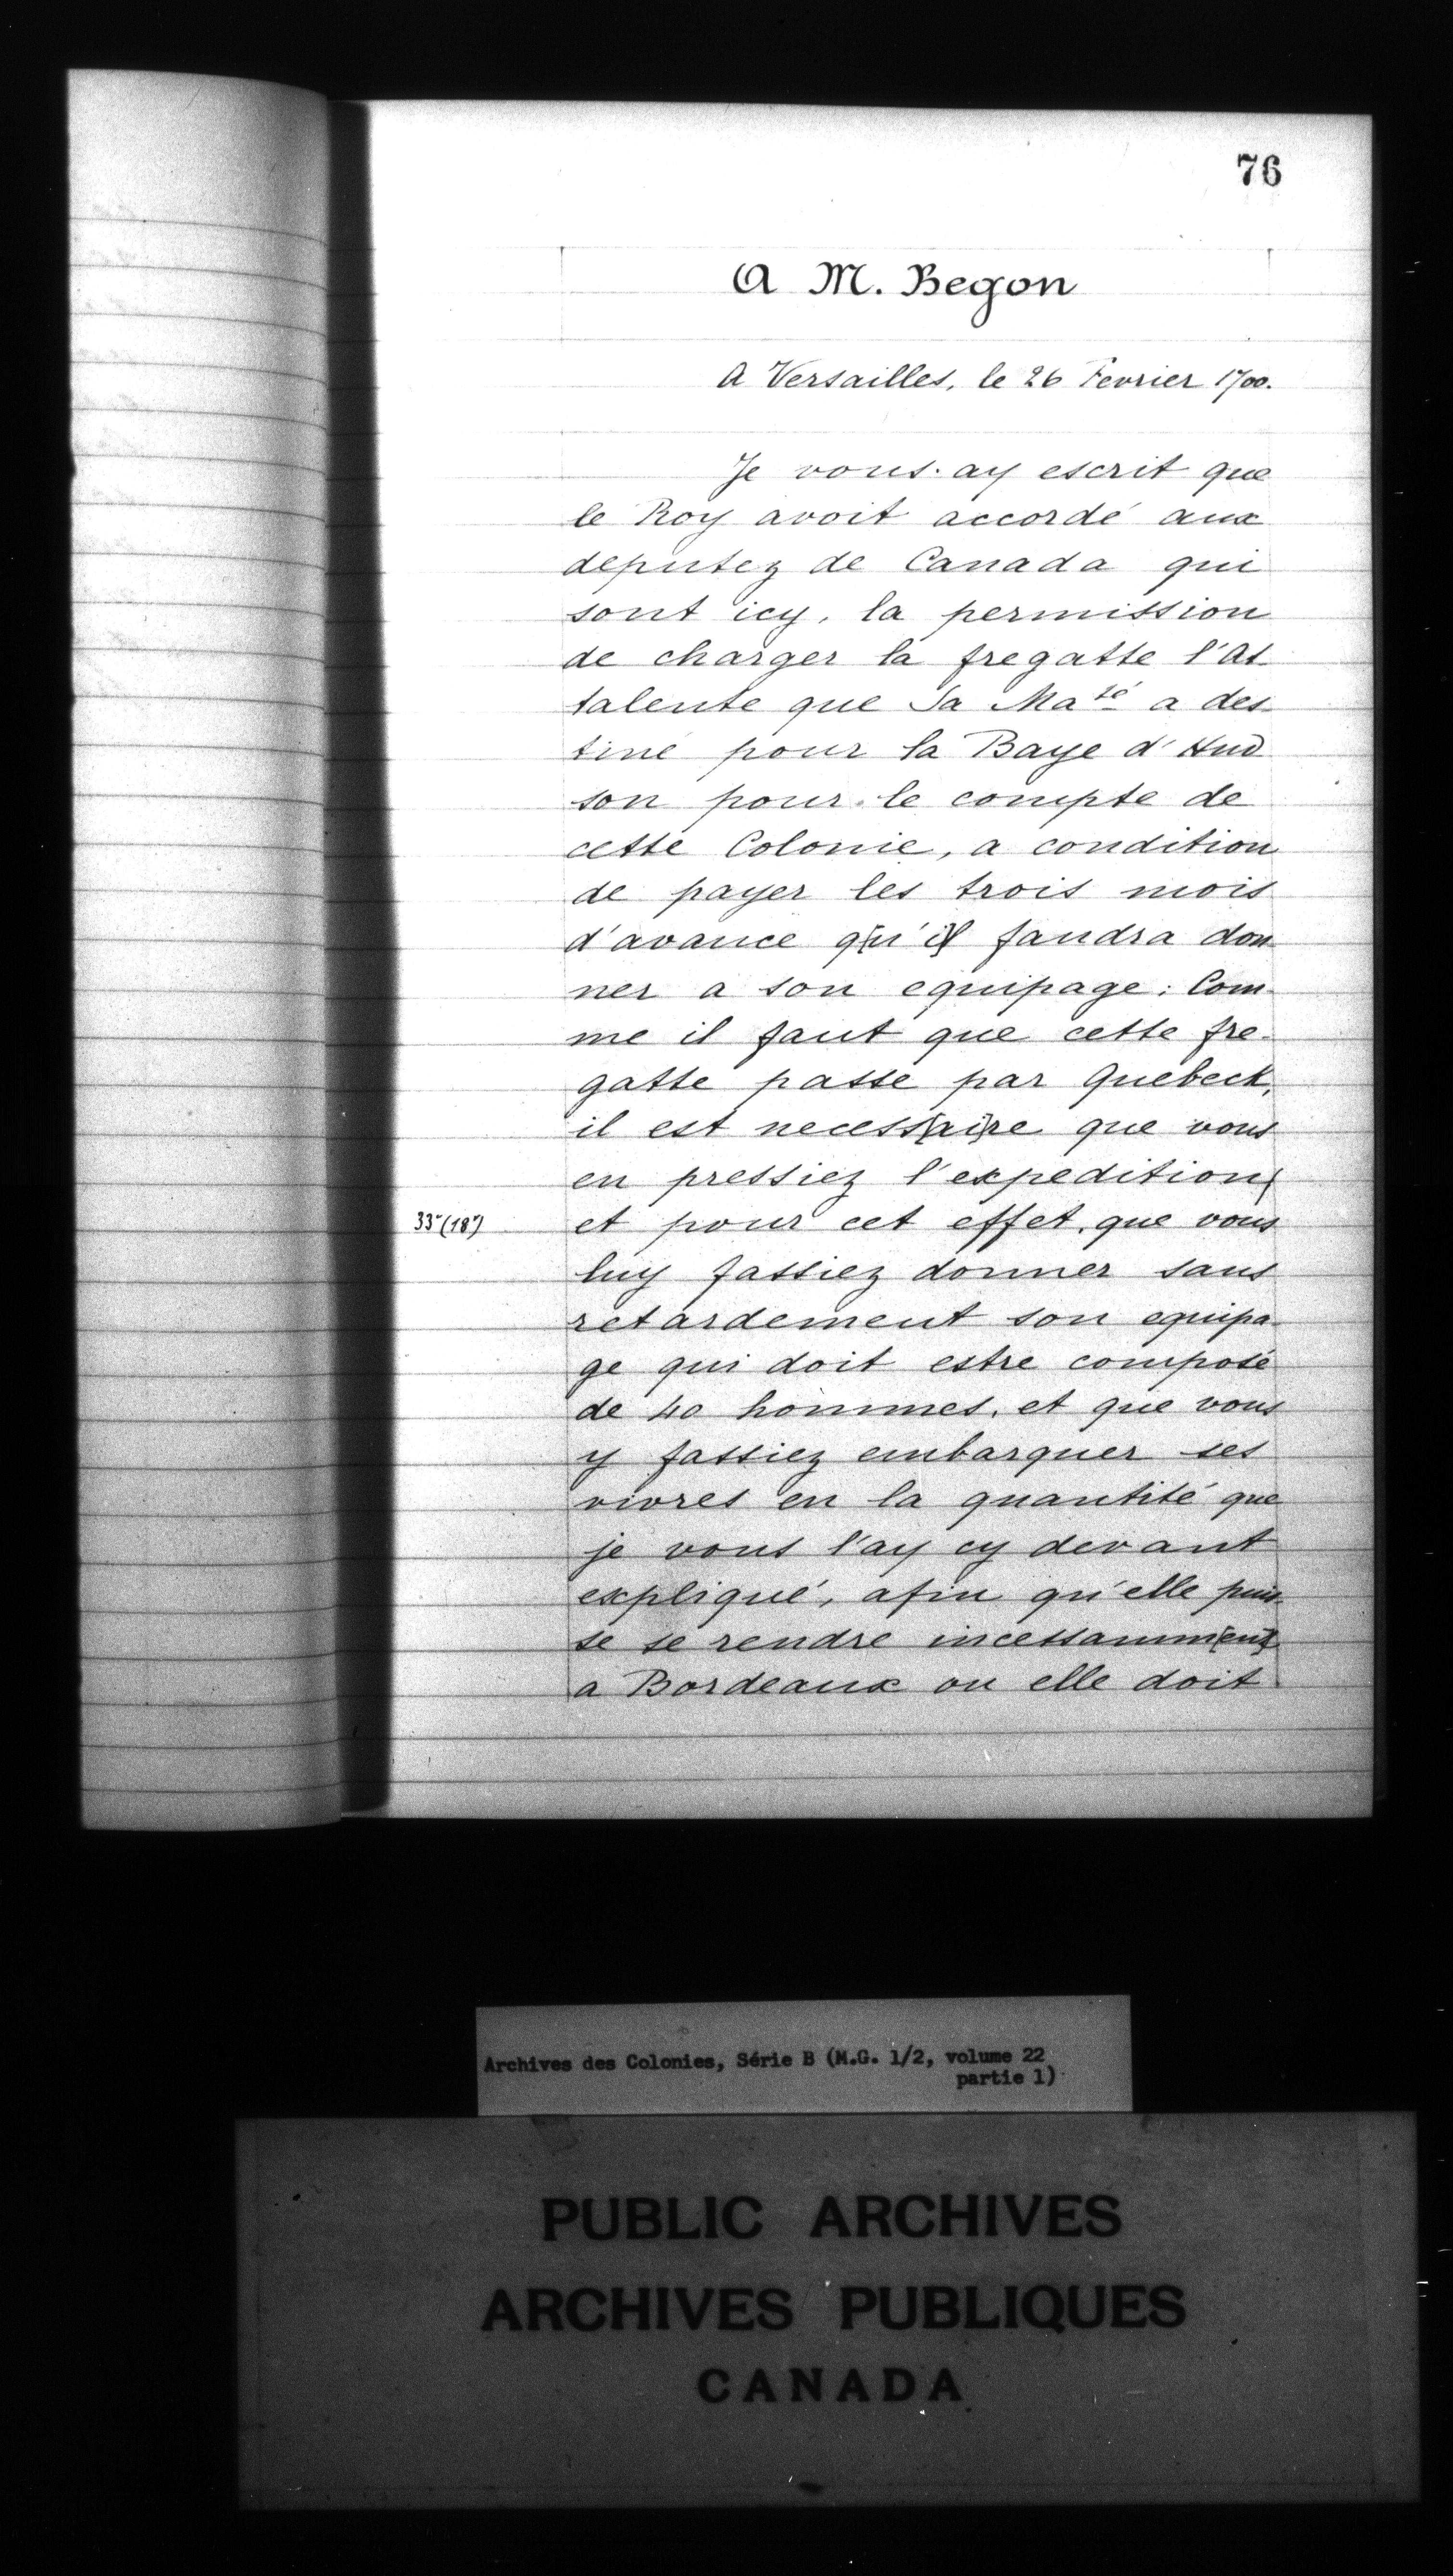 76
A M. Begon
A Versailles, le 26 Fevrier 1700.
Je vous ay escrit que
le Roy avoit accordé aux
deputez de Canada qui
sont icy, la permission
de charger la fregatte l'At
talente que Sa Maté a des
tiné pour la Baye d'Hud
son pour le compte de
cette Colonie, a condition
de payer les trois mois
d'avance q[u'i]l faudra don
ner a son equipage; Com-
me il faut que cette fre-
gatte passe par Quebeck,
il est necess[ai]re que vous
en pressiez l'expedition,
33v(18v)
et pour cet effet, que vous
luy fassiez donner sans
retardement son equipa-
ge qui doit estre composé
de 40 hommes, et que vous
y fassiez embarquer ses
vivres en la quantité que
je vous l'ay cy devant
expliqué, afin qu'elle puis-
se se rendre incessamm[ent]
a Bordeaux ou elle doit
Archives des Colonies, Série B (M.G. 1/2, volume 22
partie 1)
PUBLIC ARCHIVES
ARCHIVES PUBLIQUES
CANADA